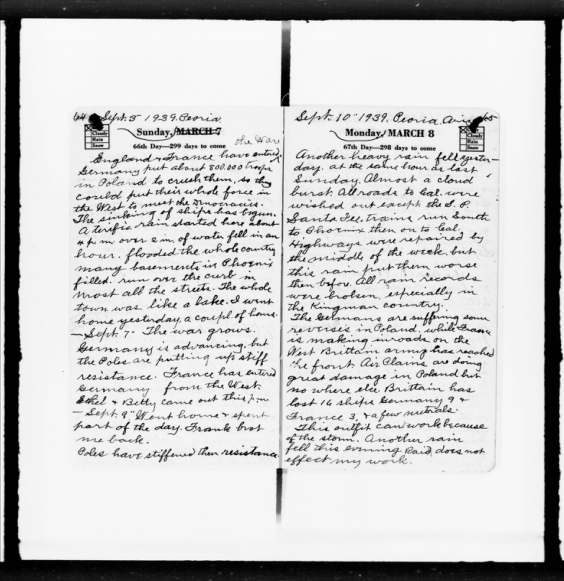 64 Sept. 5 1939. Peoria.
Cloudy
Rain
Snow
Sunday, MARCH 7
66th Day—299 days to come
the War
England & France have entered
Germany put about 800.000 troops
in Poland to crush them, so they
could put their whole force in
the West to meet the Democracies.
The sinking of ships has begun.
A terific rain started here about
4 p.m over 2 in. of water fell in an
hour. flooded the whole country
many basements in Phoenix
filled. run over the curb in
most all the streets. The whole
town was like a lake. I went
home yesterday a coupl of hours.
— Sept. 7. The war grows.
Germany is advancing, but
the Poles are putting up stiff
resistance. France has entered
Germany from the West.
Ethel & Betty came out this p.m
— Sept. 9" Went home & spent
part of the day. Frank brot
me back.
Poles have stiffened their resistance
Sept. 10" 1939. Peoria, Ariz 65
Cloudy
Rain
Snow
Monday, MARCH 8
67th Day—298 days to come
Another heavy rain fell yester-
day. at the same hour as last
Sunday. Almost a cloud
burst. All roads to Cal. were
wished out except the S. P.
Santa Fee. trains run South
to Phoenix then on to Cal.
Highways were repaired by
the middle of the week. but
this rain put them worse
then before. All rain records
were broken, especially in
the Kingman country.
The Germans are suffering some
reverses in Poland. while France
is making inroads on the
West Brittain army has reached
the front. Air Plains are doing
great damage in Poland but
no where else. Brittain has
lost 16 ships Germany 9 &
France 3, & a few nutrals.
This outfit can work because
of the storm. Another rain
fell this evening Raid, does not
effect my work.